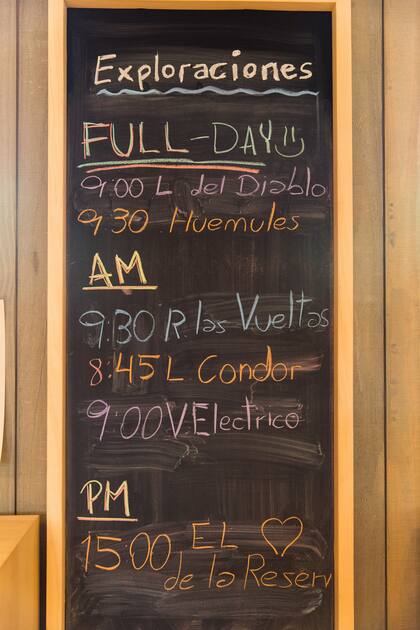 Exploraciones
FULL-DAY
9:00 L del Diablo
9:30 Huemules
AM
9:30 R. las Vueltas
8:45 L Condor
9:00 V Electrico
PM
15:00 EL
de la Reserv